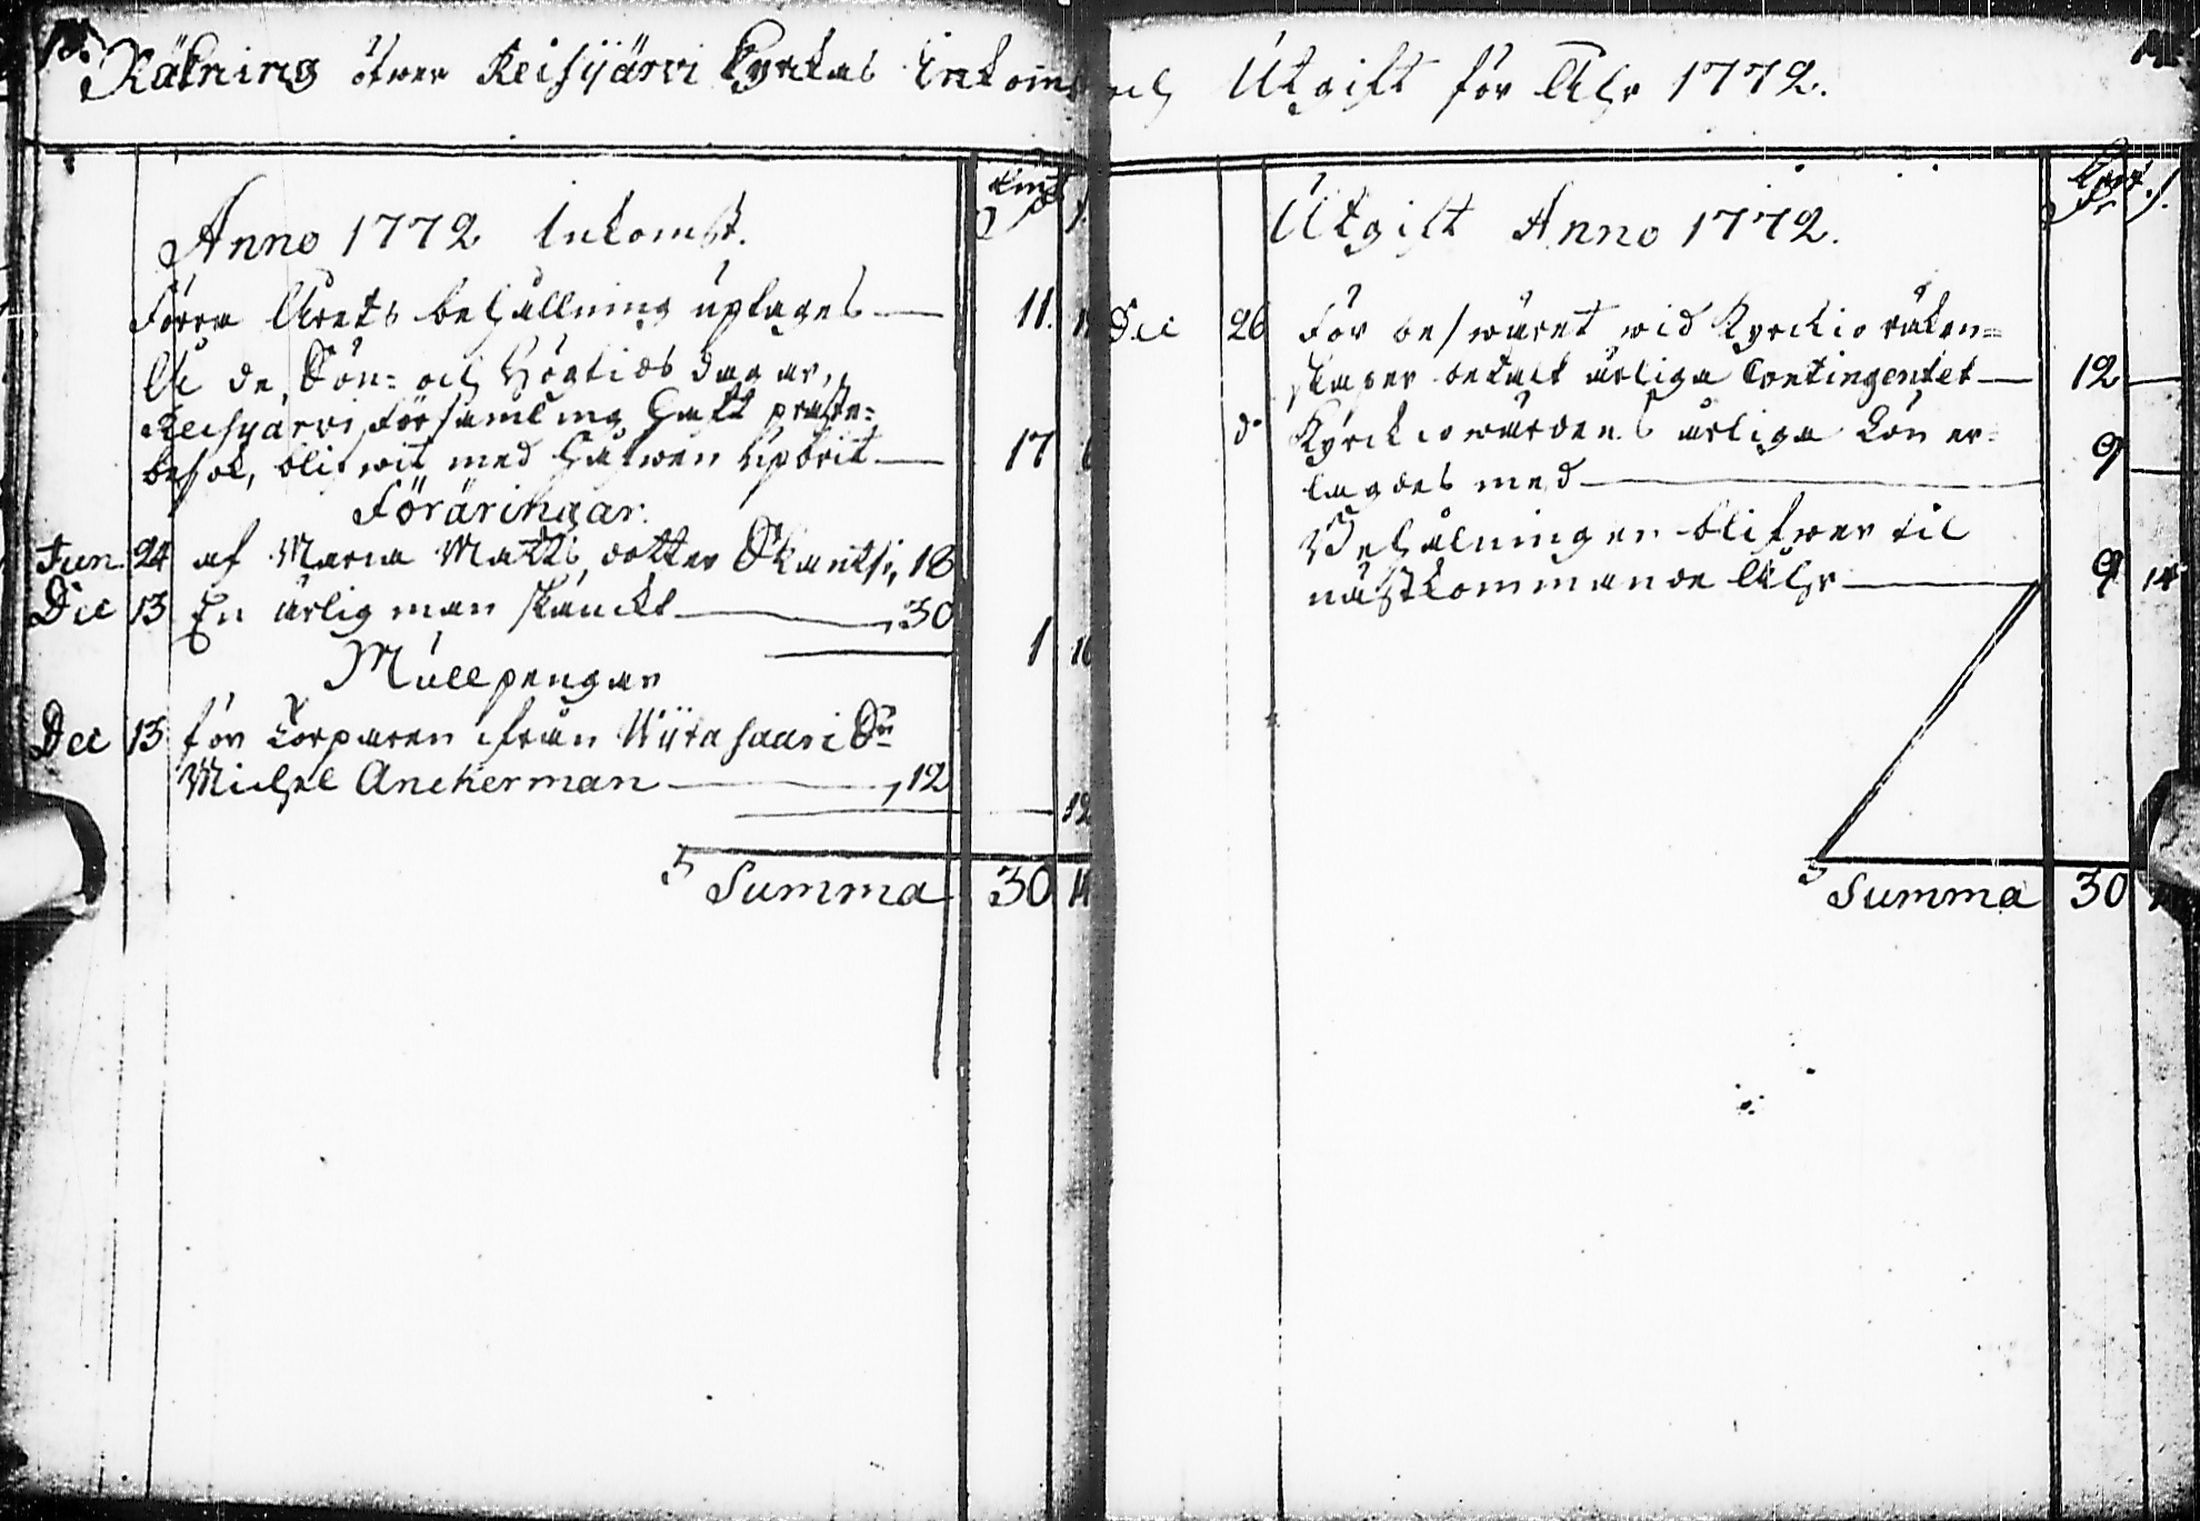 Räkning öfwer Reisijärvi Kyrkas Inkoms och Utgift för Åhr 1772.
Anno 1772 Inkomst.
Förra Årets behållning uptages — 11.
Å de Sön= och Högtids dagar,
Reisijärvi församling haft präste=
besök, blifwit med Håfwen upburit — 17
Föräringar.
Jun. 24 af Maria Matts dotter Skantsi, 18
Dec 13 En ärlig man skänckt — , 30
1 16
Mullpengar
Dec 13 för Torparen ifrån Wiitasaari Sn
Michel Anckerman — , 12
— 12
Summa 30 14
Utgift Anno 1772.
Dec 26 För beswäret wid Kyrckio räken=
skaper betalt årliga Contingentet — 12 —
do Kyrckiowärdens årliga Lön er=
lagdes med — 9 —
Behålningen blifwer til
nästkommande Åhr — 9 14
Summa 30